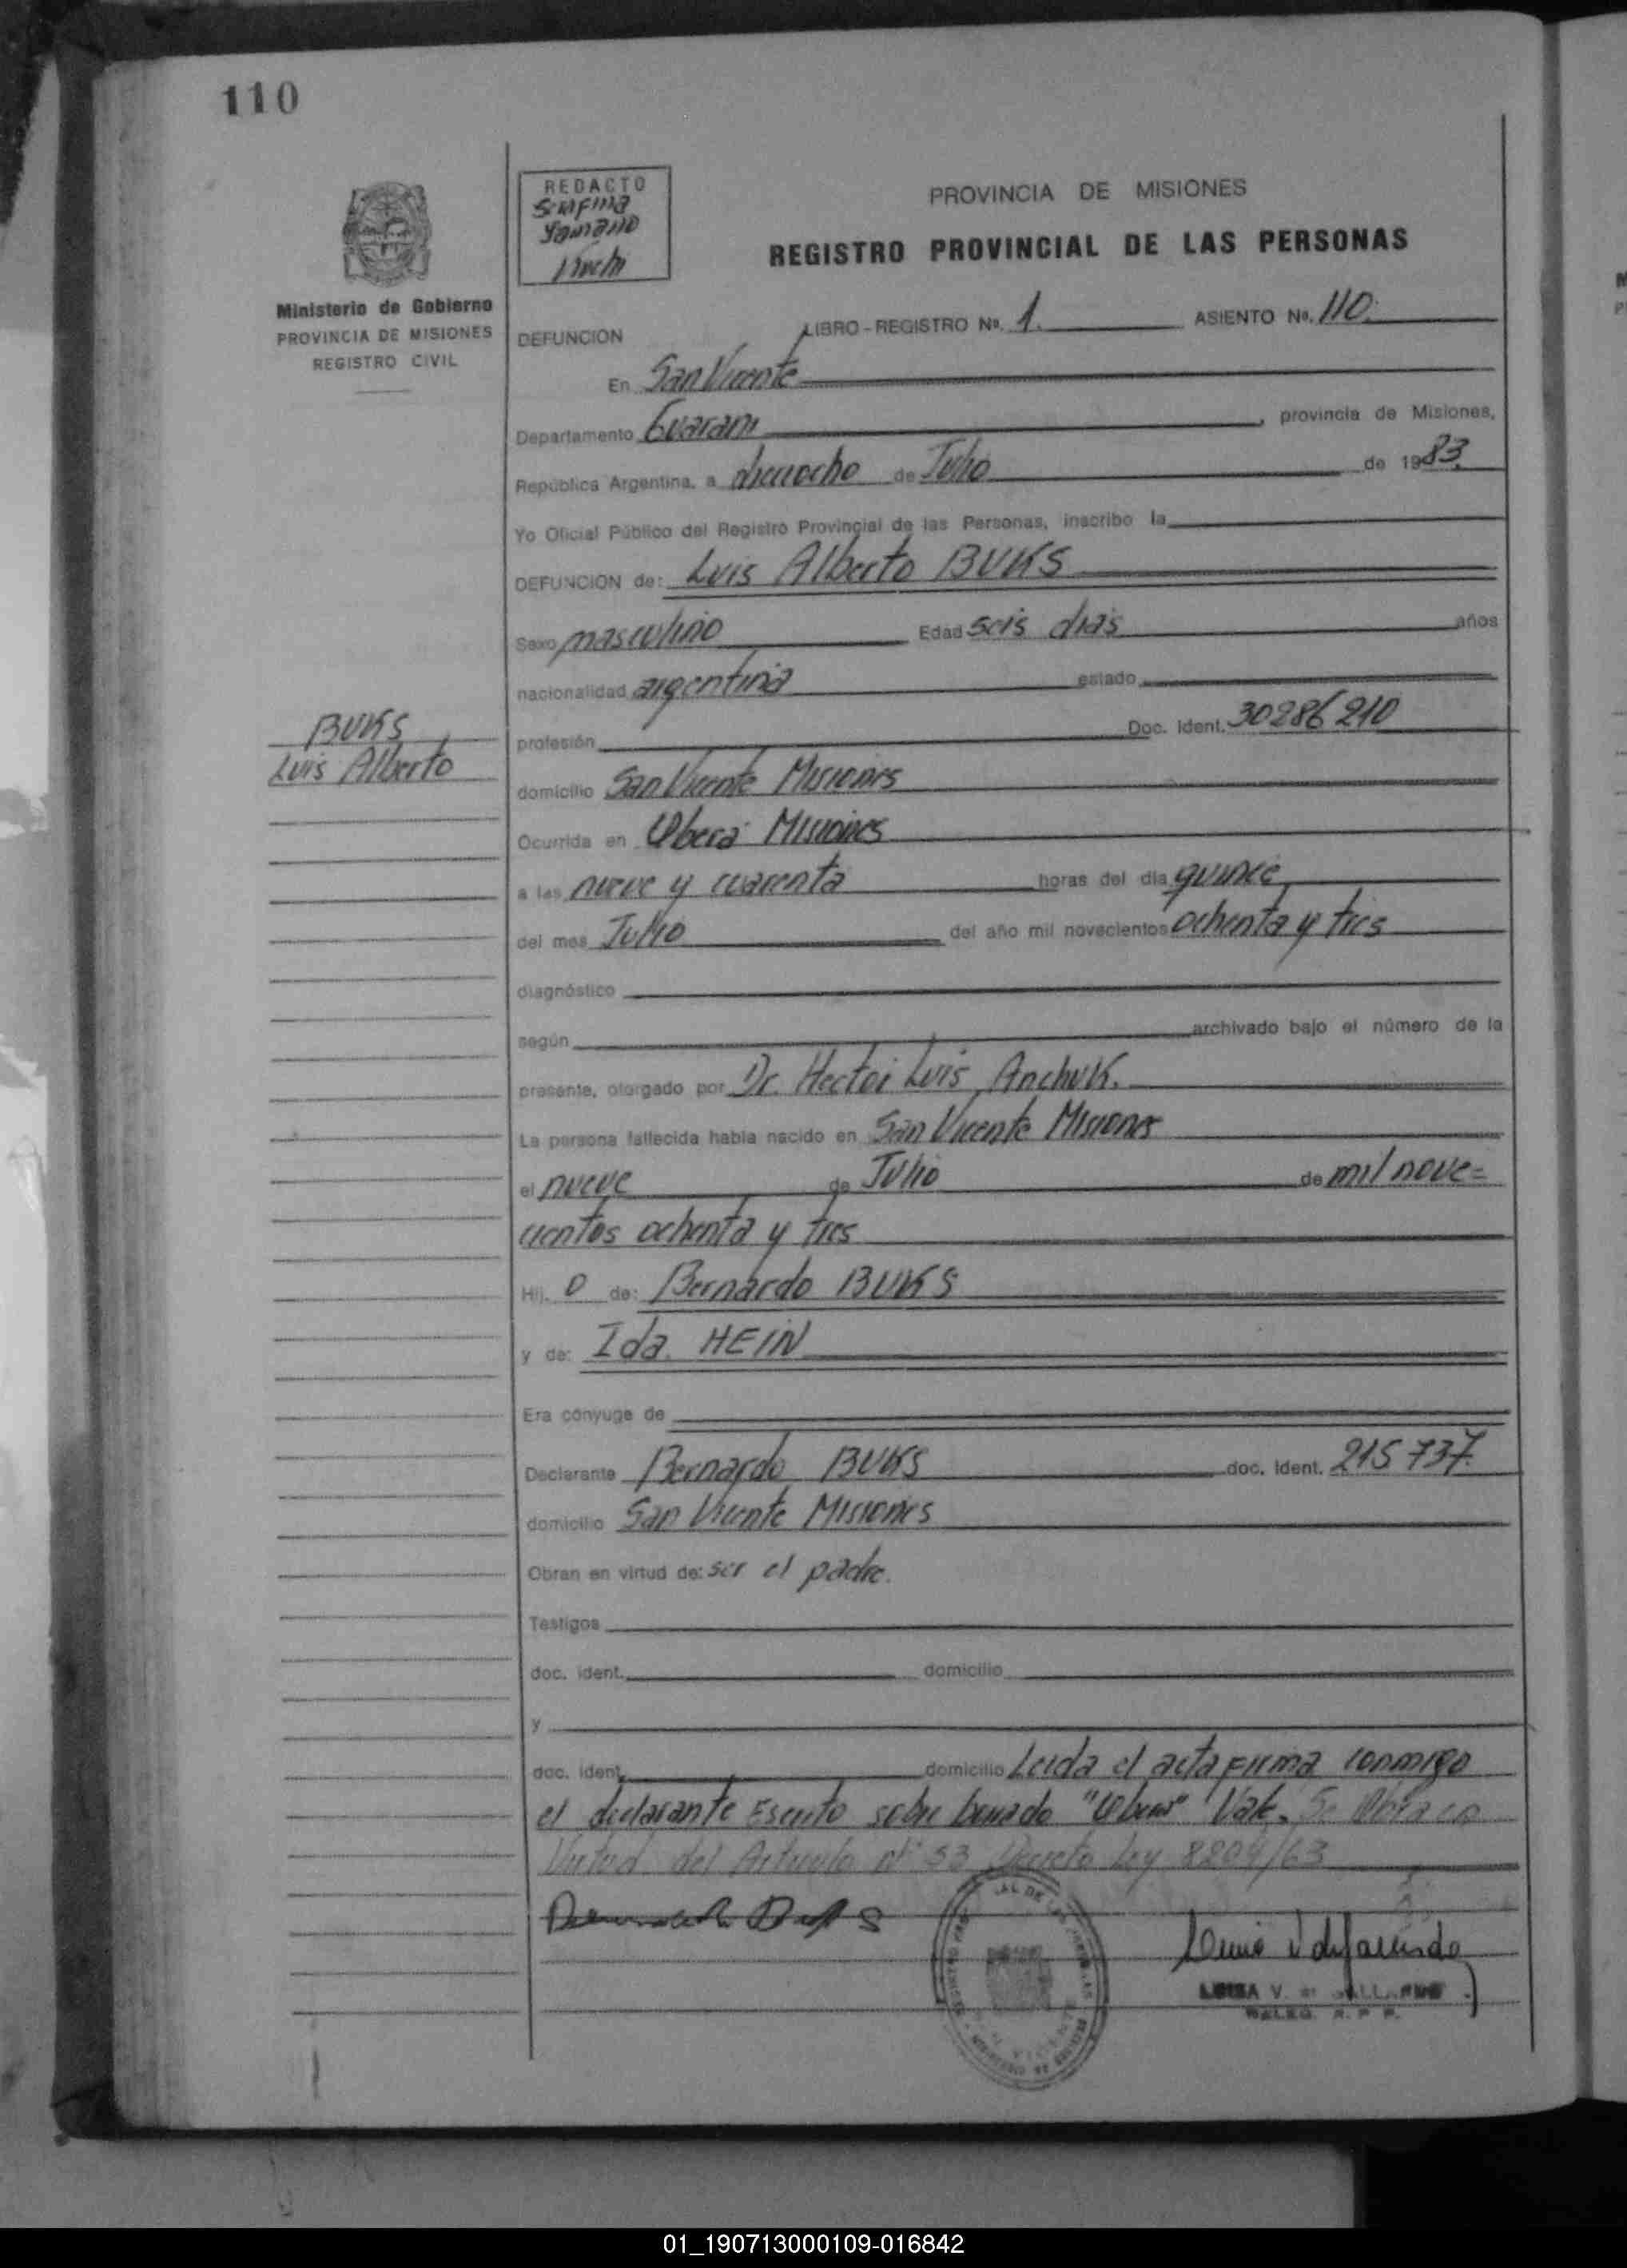 110
REDACTO
PROVINCIA DE MISIONES
REGISTRO PROVINCIAL DE LAS PERSONAS
Ministerio de Gobierno
PROVINCIA DE MISIONES
REGISTRO CIVIL
DEFUNCION LIBRO-REGISTRO Nº. 1. ASIENTO Nº. 110.
En San Vicente
Departamento Guarani, provincia de Misiones,
República Argentina, a dieciocho de Julio de 1983.
Yo Oficial Público del Registro Provincial de las Personas, inscribo la
DEFUNCION de: Luis Alberto BUKS
Sexo masculino Edad seis dias años
nacionalidad argentina estado
BUKS
Luis Alberto
profesión Doc. Ident. 30286210
domicilio San Vicente Misiones
Ocurrida en Obera Misiones
a las nueve y cuarenta horas del día quince
del mes Julio del año mil novecientos ochenta y tres
diagnóstico
según archivado bajo el número de la
presente, otorgado por Dr. Hector Luis Anchuk.
La persona fallecida había nacido en San Vicente Misiones
el nueve de Julio de mil nove=
cientos ochenta y tres
Hij. o de: Bernardo BUKS
y de: Ida HEIN
Era cónyuge de
Declarante Bernardo BUKS doc. Ident. 215737.
domicilio San Vicente Misiones
Obran en virtud de: ser el padre.
Testigos
doc. ident. domicilio
y
doc. ident. domicilio Leida el acta firma conmigo
el declarante Escrito sobre borrado "Obera" Vale. Se Obra en
Virtud del Articulo nº 53 Decreto Ley 8204/63
01_190713000109-016842